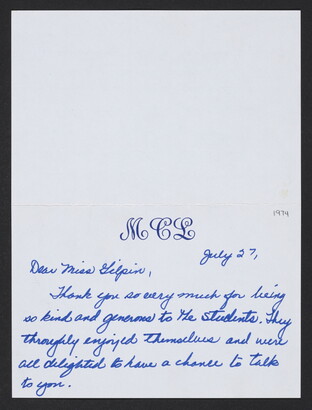 1974
MCL
July 27,
Dear Miss Gilpin,
Thank you so very much for being
so kind and generous to the students. They
throughly enjoyed themselves and were
all delighted to have a chance to talk
to you.